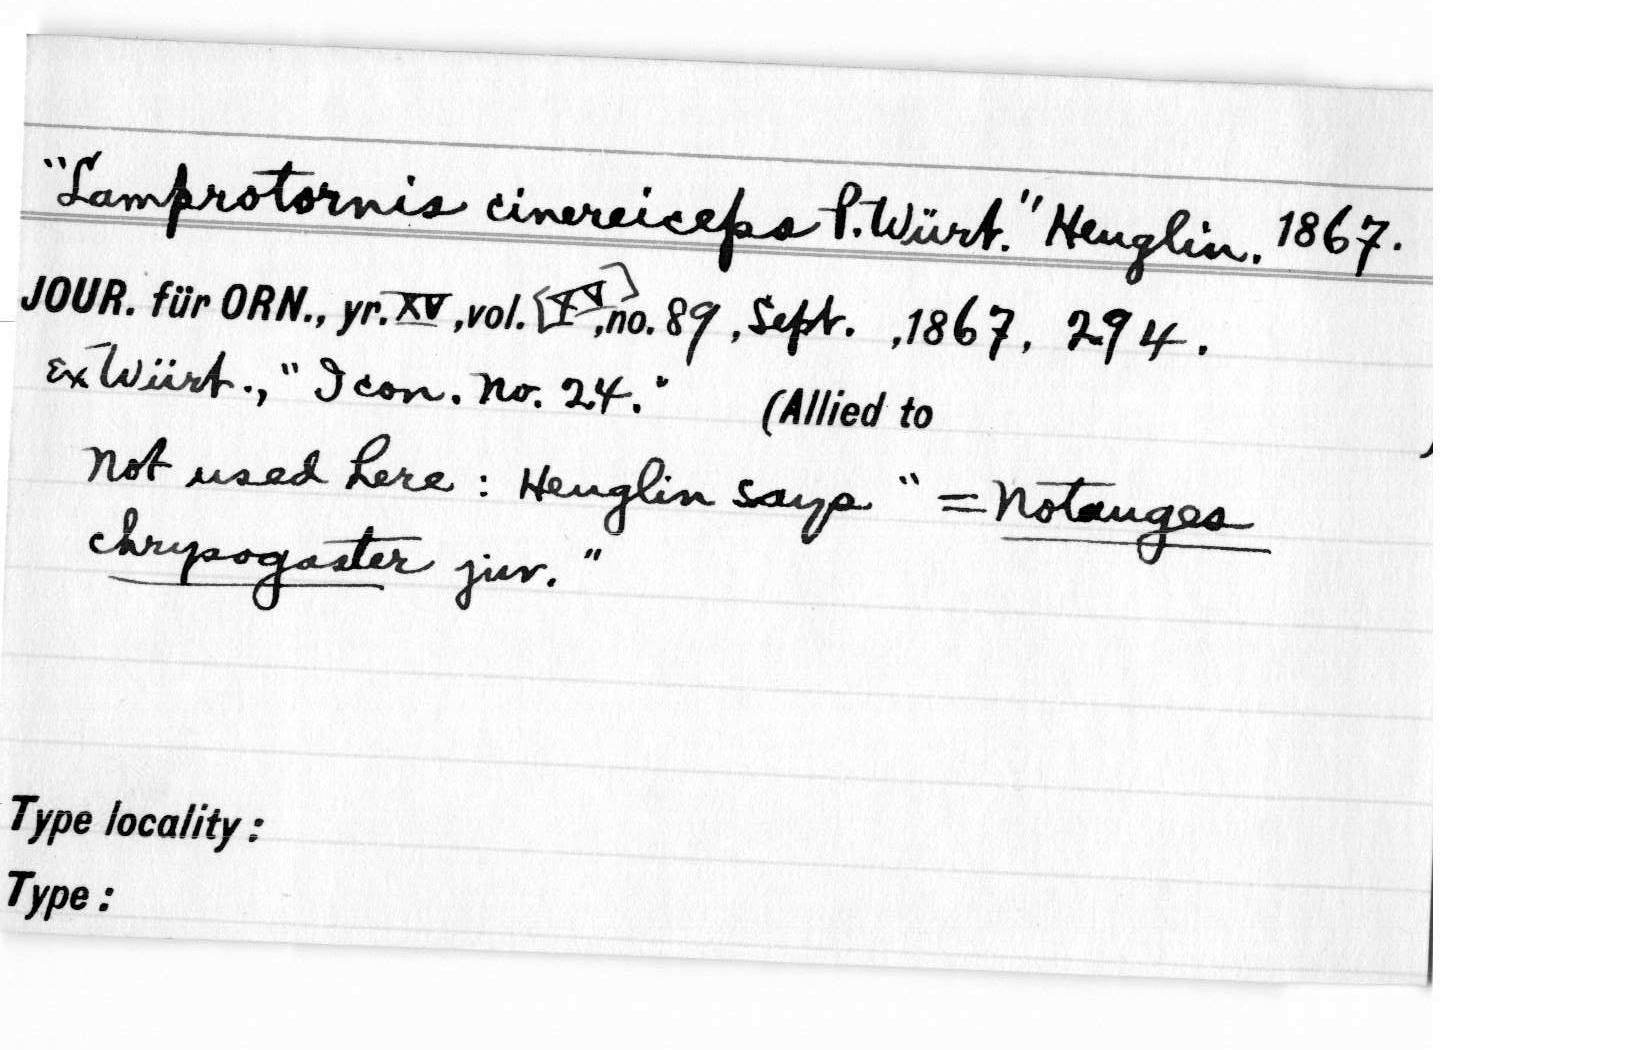 "Lamprotornis cinereiceps P. Würt." Heuglin. 1867.
JOUR. für ORN., yr. XV, vol. [XV], no. 89, Sept. , 1867, 294.
Ex Würt., "Icon. No. 24." (Allied to )
Not used here : Heuglin says " = Notauges
chrysogaster juv."
Type locality :
Type :